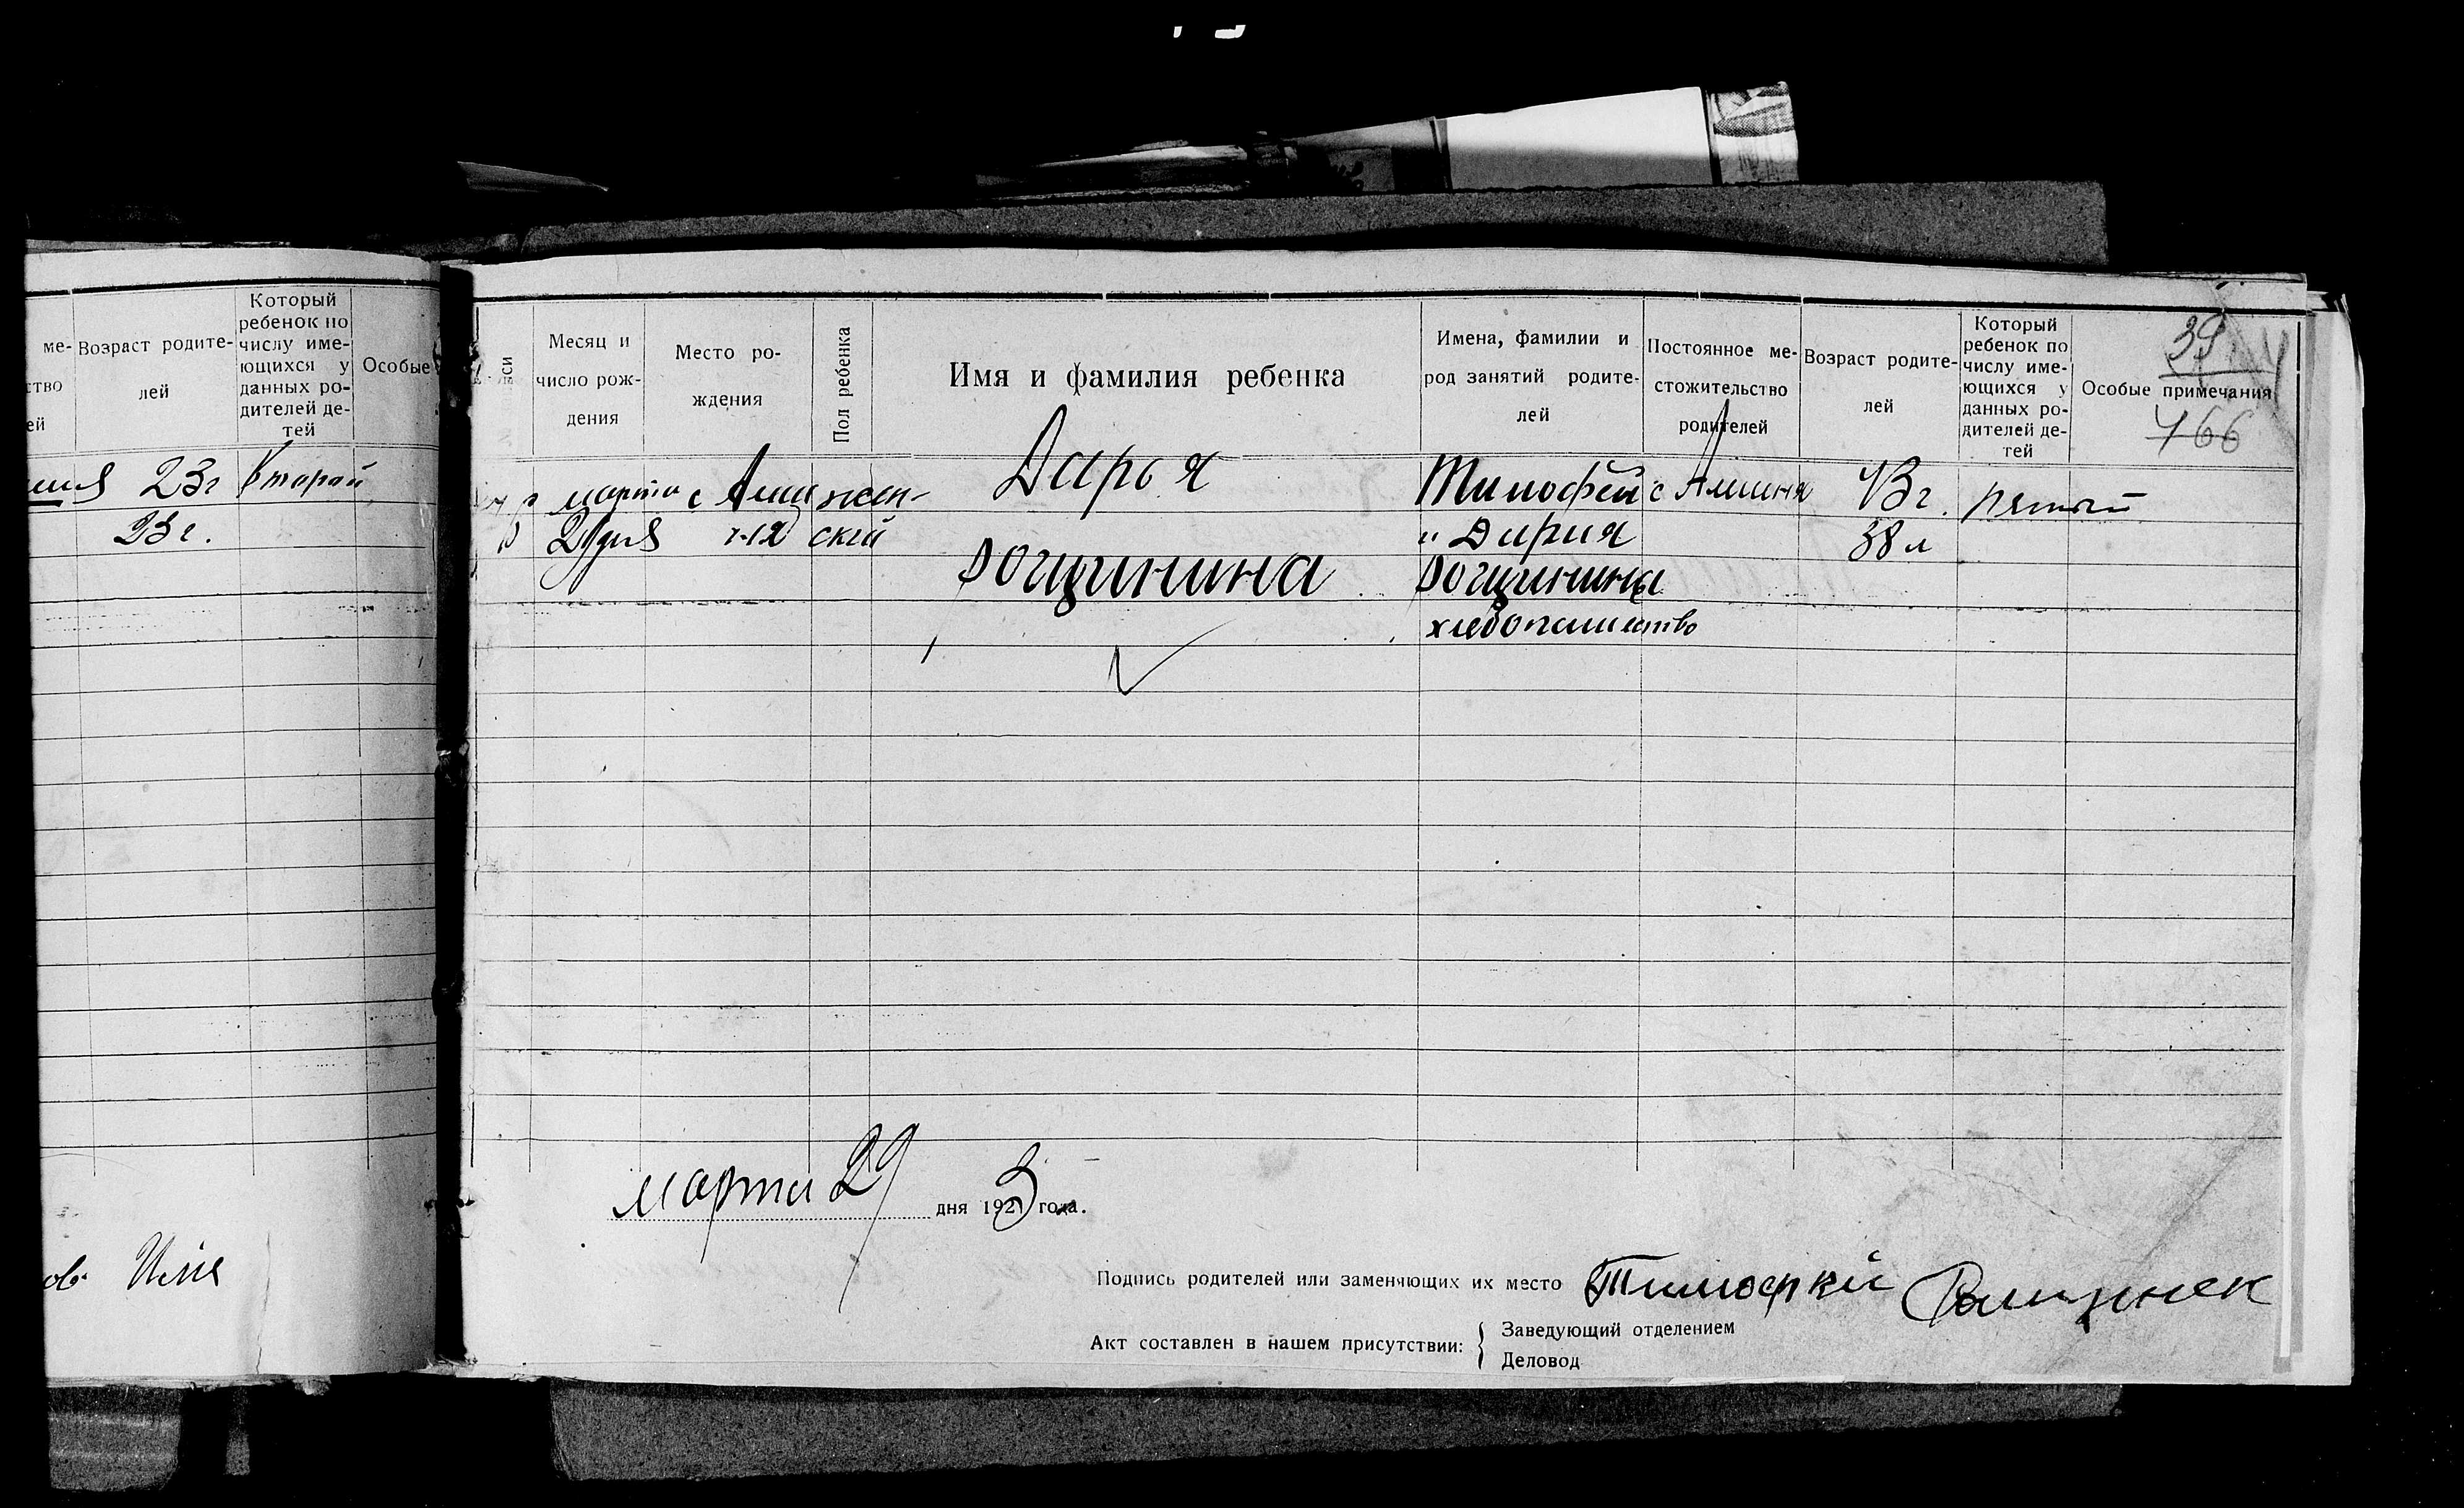 ме-
ство
ей
Возраст родите-
лей
Который
ребенок по
числу име-
ющихся у
данных ро-
дителей де-
тей
Особые
23 г второй
23 г.
ов Илия
Месяц и
число рож-
дения
Место ро-
ждения
Пол ребенка
Имя и фамилия ребенка
Имена, фамилии и
род занятий родите-
лей
Постоянное ме-
стожительство
родителей
Возраст родите-
лей
Который
ребенок по
числу име-
ющихся у
данных ро-
дителей де-
тей
Особые примечания
39
466
марта с Алши жен- Дарья Тимофей с Алшиня 43 г. пятый
дня ня ский " Дария 38 л
Рощинина Рощинины
хлебопашество
марта 29 дня 1923 года.
Подпись родителей или заменяющих их место Тимофей Ращинек
Акт составлен в нашем присутствии:
Заведующий отделением
Деловод